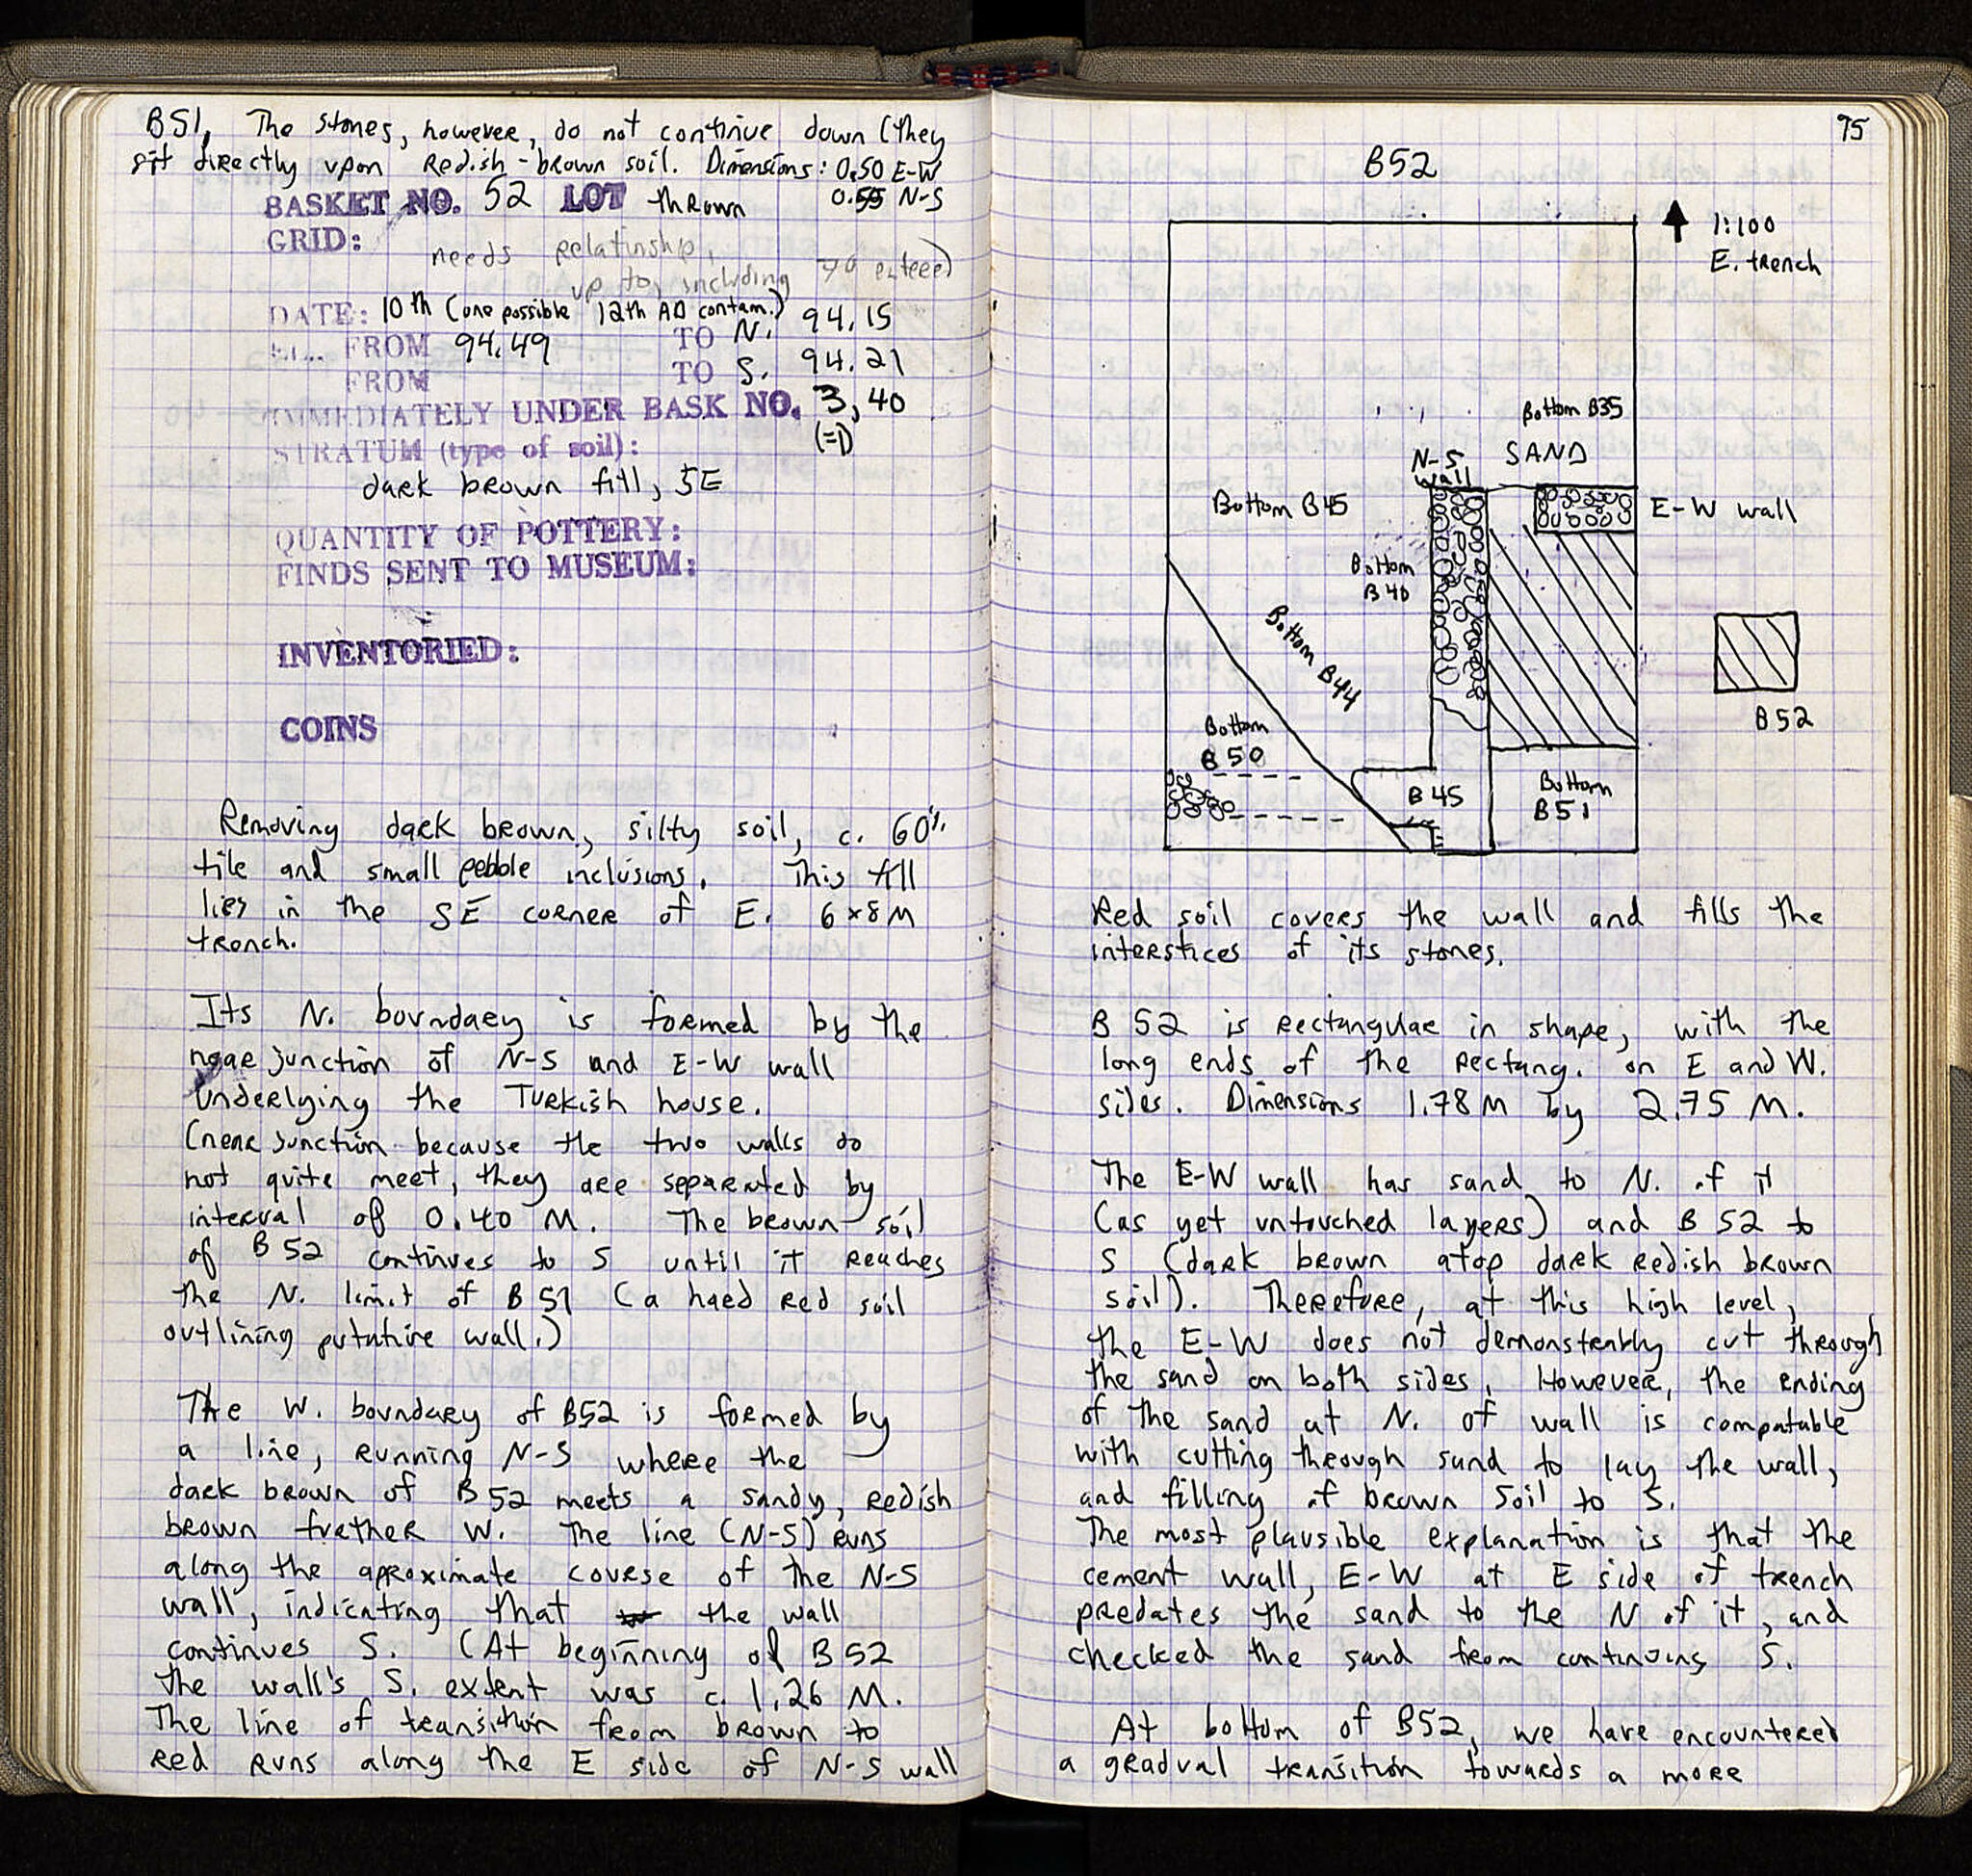 B51, The stones, however, do not continue down (they
sit directly upon Redish-brown soil. Dimensions: 0.50 E-W
BASKET NO. 52 LOT thrown 0.55 N-S
GRID:
needs relatinship,
up to, including
DATE: 10th (one possible 12th AD contam.)
FROM 94.49 TO N. 94.15
FROM TO S. 94.21
IMMEDIATELY UNDER BASK NO. 3, 40
(=1)
STRATUM (type of soil):
dark brown fill, SE
QUANTITY OF POTTERY:
FINDS SENT TO MUSEUM:
INVENTORIED:
COINS
Removing dark brown, silty soil, c. 60%
tile and small pebble inclusions. This fill
lies in the SE corner of E. 6x8M
trench.
Its N. boundary is formed by the
near junction of N-S and E-W wall
underlying the Turkish house.
(near junction because the two walls do
not quite meet, they are separated by
interval of 0.40 M. The brown soil
of B52 continues to S until it reaches
the N. limit of B51 (a hard red soil
outlining putative wall.)
The W. boundary of B52 is formed by
a line, running N-S where the
dark brown of B52 meets a sandy, redish
brown further W. The line (N-S) runs
along the aproximate course of the N-S
wall, indicating that the wall
continues S. (At beginning of B52
the wall's S. extent was c. 1.26 M.
The line of transition from brown to
red runs along the E side of N-S wall
75
B52
1:100
E. trench
Bottom B35
SAND
N-S
wall
Bottom B45
E-W wall
Bottom
B40
Bottom B44
B52
Bottom
B50
B45
Bottom
B51
Red soil covers the wall and fills the
interstices of its stones.
B52 is rectangular in shape, with the
long ends of the rectang. on E and W.
sides. Dimensions 1.78M by 2.75 M.
The E-W wall has sand to N. of it
(as yet untouched layers) and B52 to
S (dark brown atop dark redish brown
soil). Therefore, at this high level,
the E-W does not demonstrably cut through
the sand on both sides. However, the ending
of the sand at N. of wall is compatable
with cutting through sand to lay the wall,
and filling of brown soil to S.
The most plausible explanation is that the
cement wall, E-W at E side of trench
predates the sand to the N of it, and
checked the sand from continuing S.
At bottom of B52, we have encountered
a gradual transition towards a more